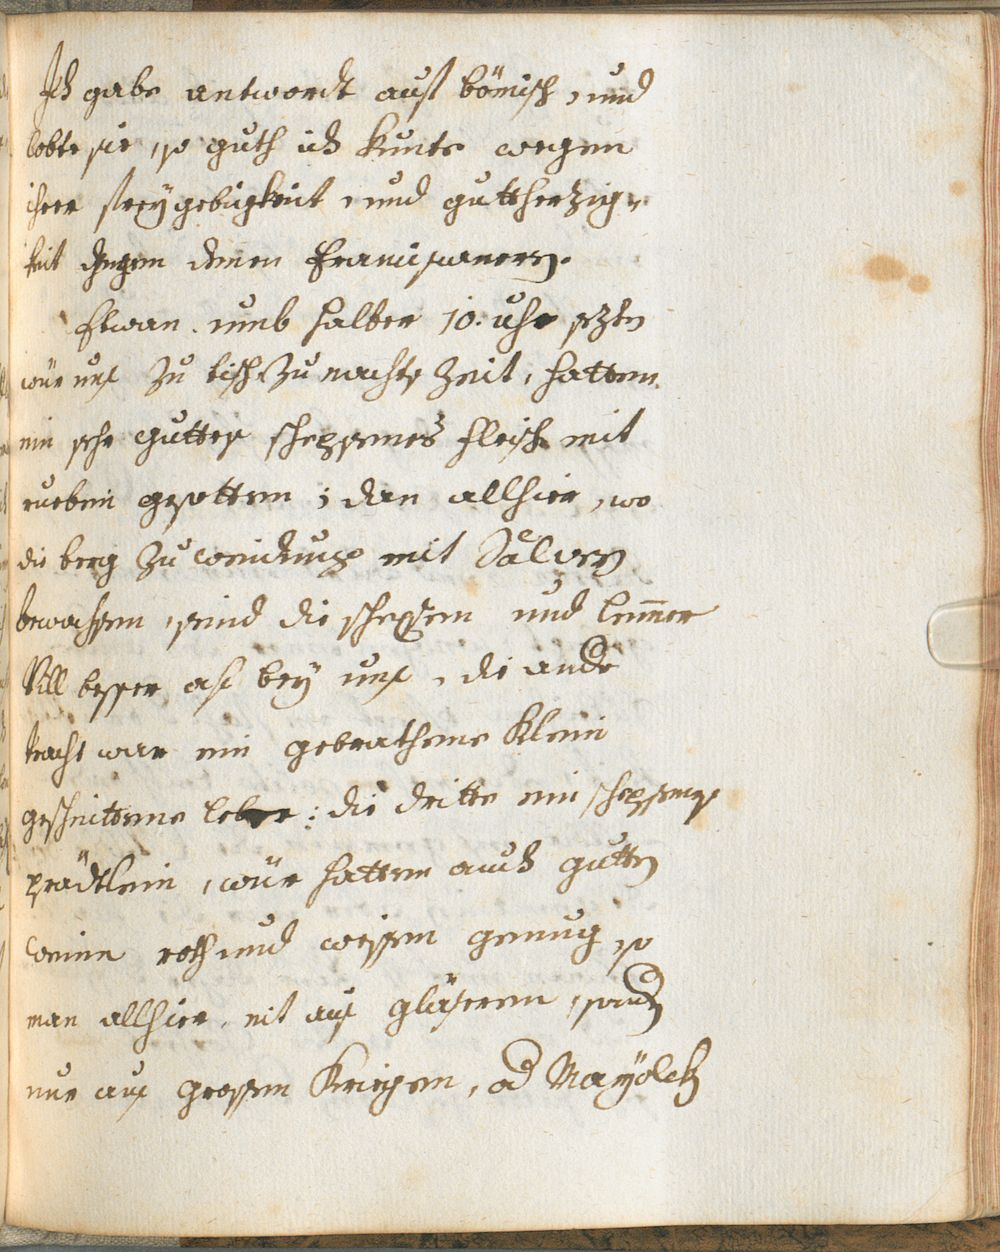 Ich gabe antwordt auff bömisch, und
lobte sie, so guth ich kunte wegen
ihrer freÿgebigkeit, und guttherzig-
keit gegen denen Franciscanern.
Etwan umb halber 10. uhr sezten
wür unß zu tisch zu nachts zeit, hatten
ein sehr guttes schepsenes fleisch mit
rueben gesotten; dan allhier, wo
die berg zu weidtung mit Salven
bewachsen, seind die schepsen und lem̄er
Vill besser alß beÿ unß, die ande
tracht war ein gebrathene klein
geschnittene leber: die dritte ein schepsenes
prädtlein, wür hatten auch gutten
weine roth und weissen genug, so
man allhier nit auß gläseren, sond
nur auß grossen kriegen, od Maÿölck